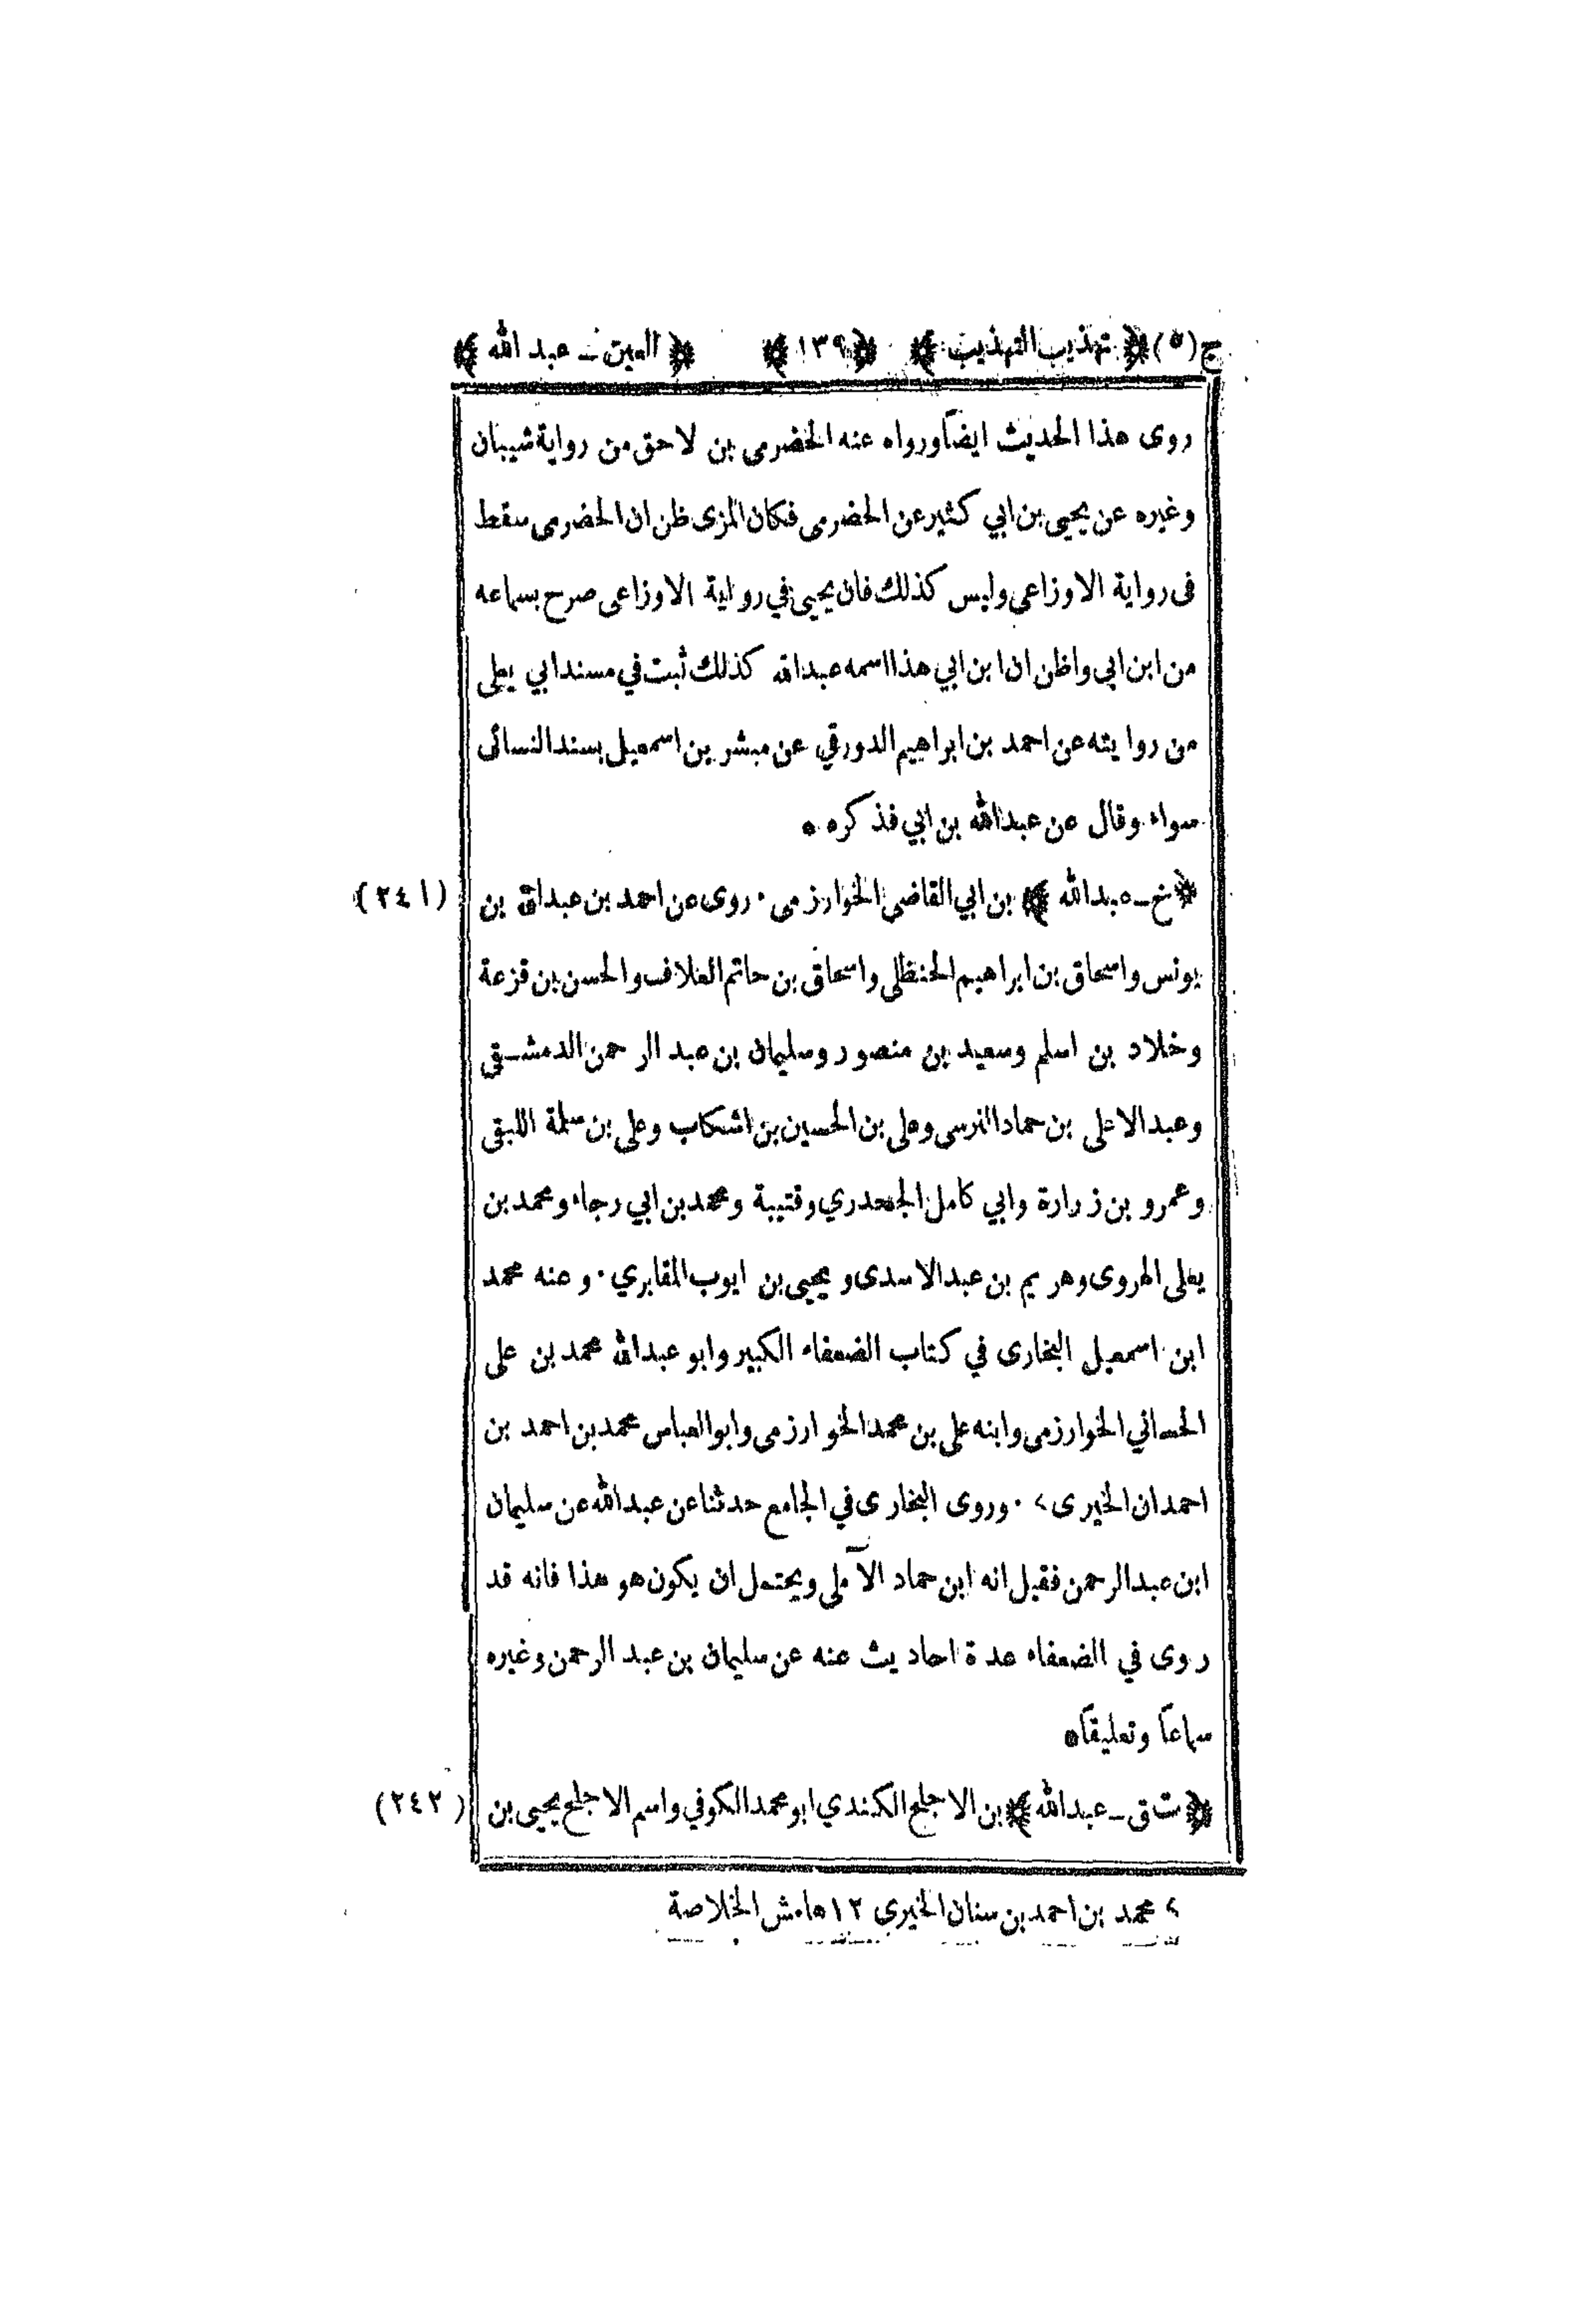 ج(٥) ﴿ تهذيب التهذيب ﴾ ﴿١٣٩﴾ ﴿ العين ـ عبد الله ﴾
روى هذا الحديث ايضاً ورواه عنه الحضرمى بن لاحق من رواية شيبان
وغيره عن يحيى بن ابي كثير عن الحضرمى فكان المزى ظن ان الحضرمى سقط
فى رواية الاوزاعى وليس كذلك فان يحيى في رواية الاوزاعى صرح بسماعه
من ابن ابي واظن ان ابن ابي هذا اسمه عبد الله كذلك ثبت في مسند ابي يعلى
من روايته عن احمد بن ابراهيم الدورقي عن مبشر بن اسمعيل بسند النسائى
سواء وقال عن عبد الله بن ابي فذكره ٠
﴿ خ ـ عبد الله ﴾ بن ابي القاضى الخوارزمى ٠ روى عن احمد بن عبد الله بن (٢٤١)
يونس واسحاق بن ابراهيم الحنظلي واسحاق بن حاتم العلاف والحسن بن قزعة
وخلاد بن اسلم وسعيد بن منصور وسليمان بن عبد الرحمن الدمشـقى
وعبد الاعلى بن حماد النرسى وعلى بن الحسين بن اشكاب وعلى بن سلمة اللبقى
وعمرو بن زرارة وابي كامل الجحدري وقتيبة ومحمد بن ابي رجاء ومحمد بن
يعلى الهروى وهريم بن عبد الاسدى ويحيى بن ايوب المقابري ٠ وعنه محمد
ابن اسمعيل البخارى في كتاب الضعفاء الكبير وابو عبد الله محمد بن على
الحسانى الخوارزمى وابنه على بن محمد الخوارزمى وابو العباس محمد بن احمد بن
احمدان الخيرى ٢ ٠ وروى البخارى في الجامع حدثنا عن عبد الله عن سليمان
ابن عبد الرحمن فقيل انه ابن حماد الآملى ويحتمل ان يكون هو هذا فانه قد
روى في الضعفاء عدة احاديث عنه عن سليمان بن عبد الرحمن وغيره
سماعاً وتعليقاً٠
﴿ ت ق ـ عبد الله ﴾ بن الاجلح الكندي ابو محمد الكوفي واسم الاجلح يحيى بن (٢٤٢)
٢ محمد بن احمد بن سنان الخيرى ١٢ هامش الخلاصة